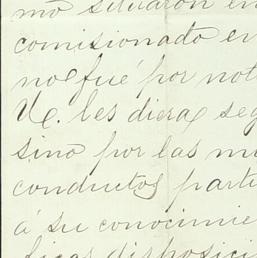 mo situaron en
comisionado en
no fué por not
Ve. les diera seg
sino por las m
conductos parti
á su conocimie
disposici